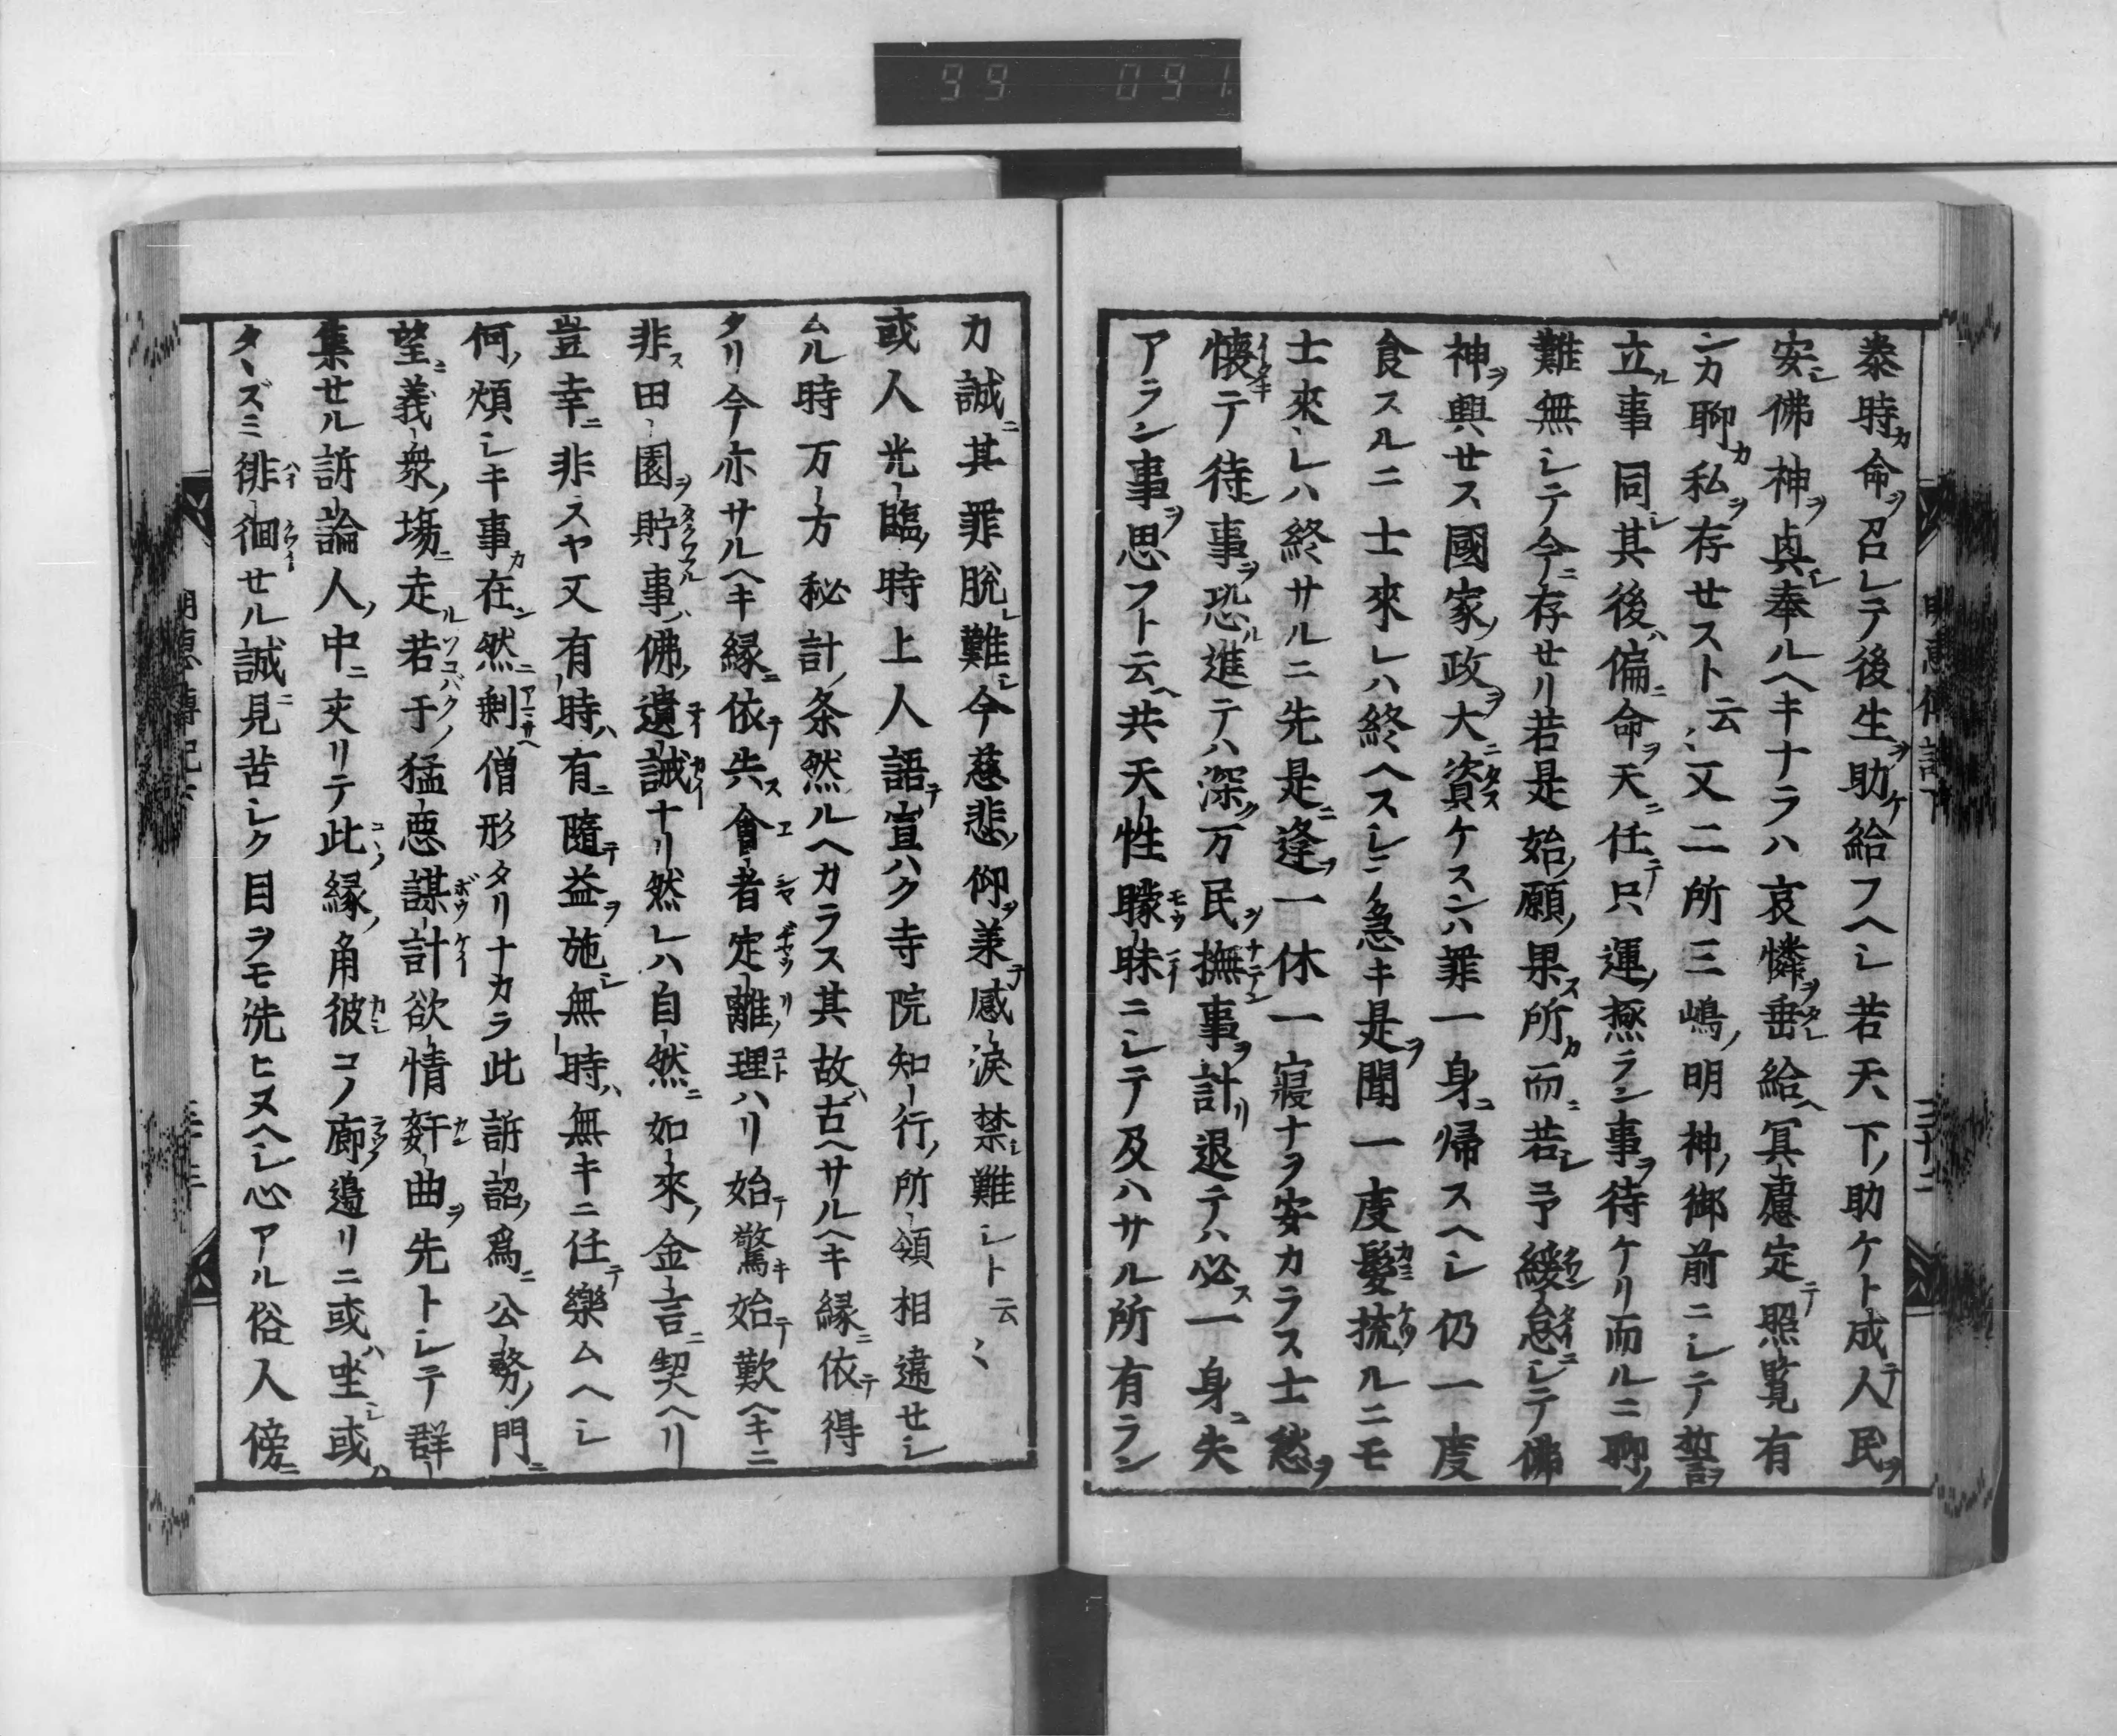 99 091
泰時カ命ヲ召シテ後生ヲ助ケ給フヘシ若天下ノ助ケト成テ人民ヲ
安シ佛神ヲ眞シ奉ルヘキナラハ哀憐ヲ垂レ給ヘ冥慮定テ照覧有
ンカ聊カ私ヲ存セスト云々又二所三嶋ノ明神ノ御前ニシテ誓ヲ
立ル事同シ其後ハ偏ニ命ヲ天ニ任テ只運ノ極ラン事ヲ待ケリ而ルニ聊ノ
難無シテ今ニ存セリ若是始ノ願ノ果ス所カ而ニ若シ予緩怠ニシテ佛
神ヲ興セス國家ノ政ヲ大ニ資ケスンハ罪一身ニ帰スヘシ仍一度
食スルニ士來レハ終ヘスシテ急キ是ヲ聞一度髮梳ルニモ
士來レハ終サルニ先是ニ逢フ一休一寢ナヲ安カラス士愁ヲ
懐テ待ン事ヲ恐ル進テハ深ク万民ヲ撫ン事ヲ計リ退テハ必ス一身ニ失
アラン事ヲ思フト云ヘ共天性朦昧ニシテ及ハサル所有ラン
明恵傳記下 三十二
カ誠ニ其罪脱レ難シ今慈悲ノ仰ヲ兼テ感涙禁シ難シト云々
或人光臨ノ時上人語テ宣ハク寺院知行ノ所領相違セシ
ムル時万方秘計ノ条然ルヘカラス其故ハ古ヘサルヘキ縁ニ依テ得
タリ今亦サルヘキ縁ニ依テ失ス會者定離ノ理ハリ始テ驚キ始テ歎ヘキニ
非ス田園ヲ貯事ハ佛ノ遺誡ナリ然レハ自然ニ如來ノ金言ニ契ヘリ
豈幸ニ非スヤ又有時ハ有ニ隨テ益ヲ施シ無時ハ無キニ任テ樂ムヘシ
何ノ煩シキ事カ在ン然ニ剰僧形タリナカラ此訴詔ノ爲ニ公務ノ門ニ
望ニ義衆ノ塲ニ走ル若于猛惡謀計欲情奸曲ヲ先トシテ群
集セル訴論人ノ中ニ夾リテ此縁ノ角彼コノ廊ノ邉リニ或ハ坐シ或ハ
タヽズミ徘徊セル誠ニ見苦シク目ヲモ洗ヒヌヘシ心アル俗人傍ニ